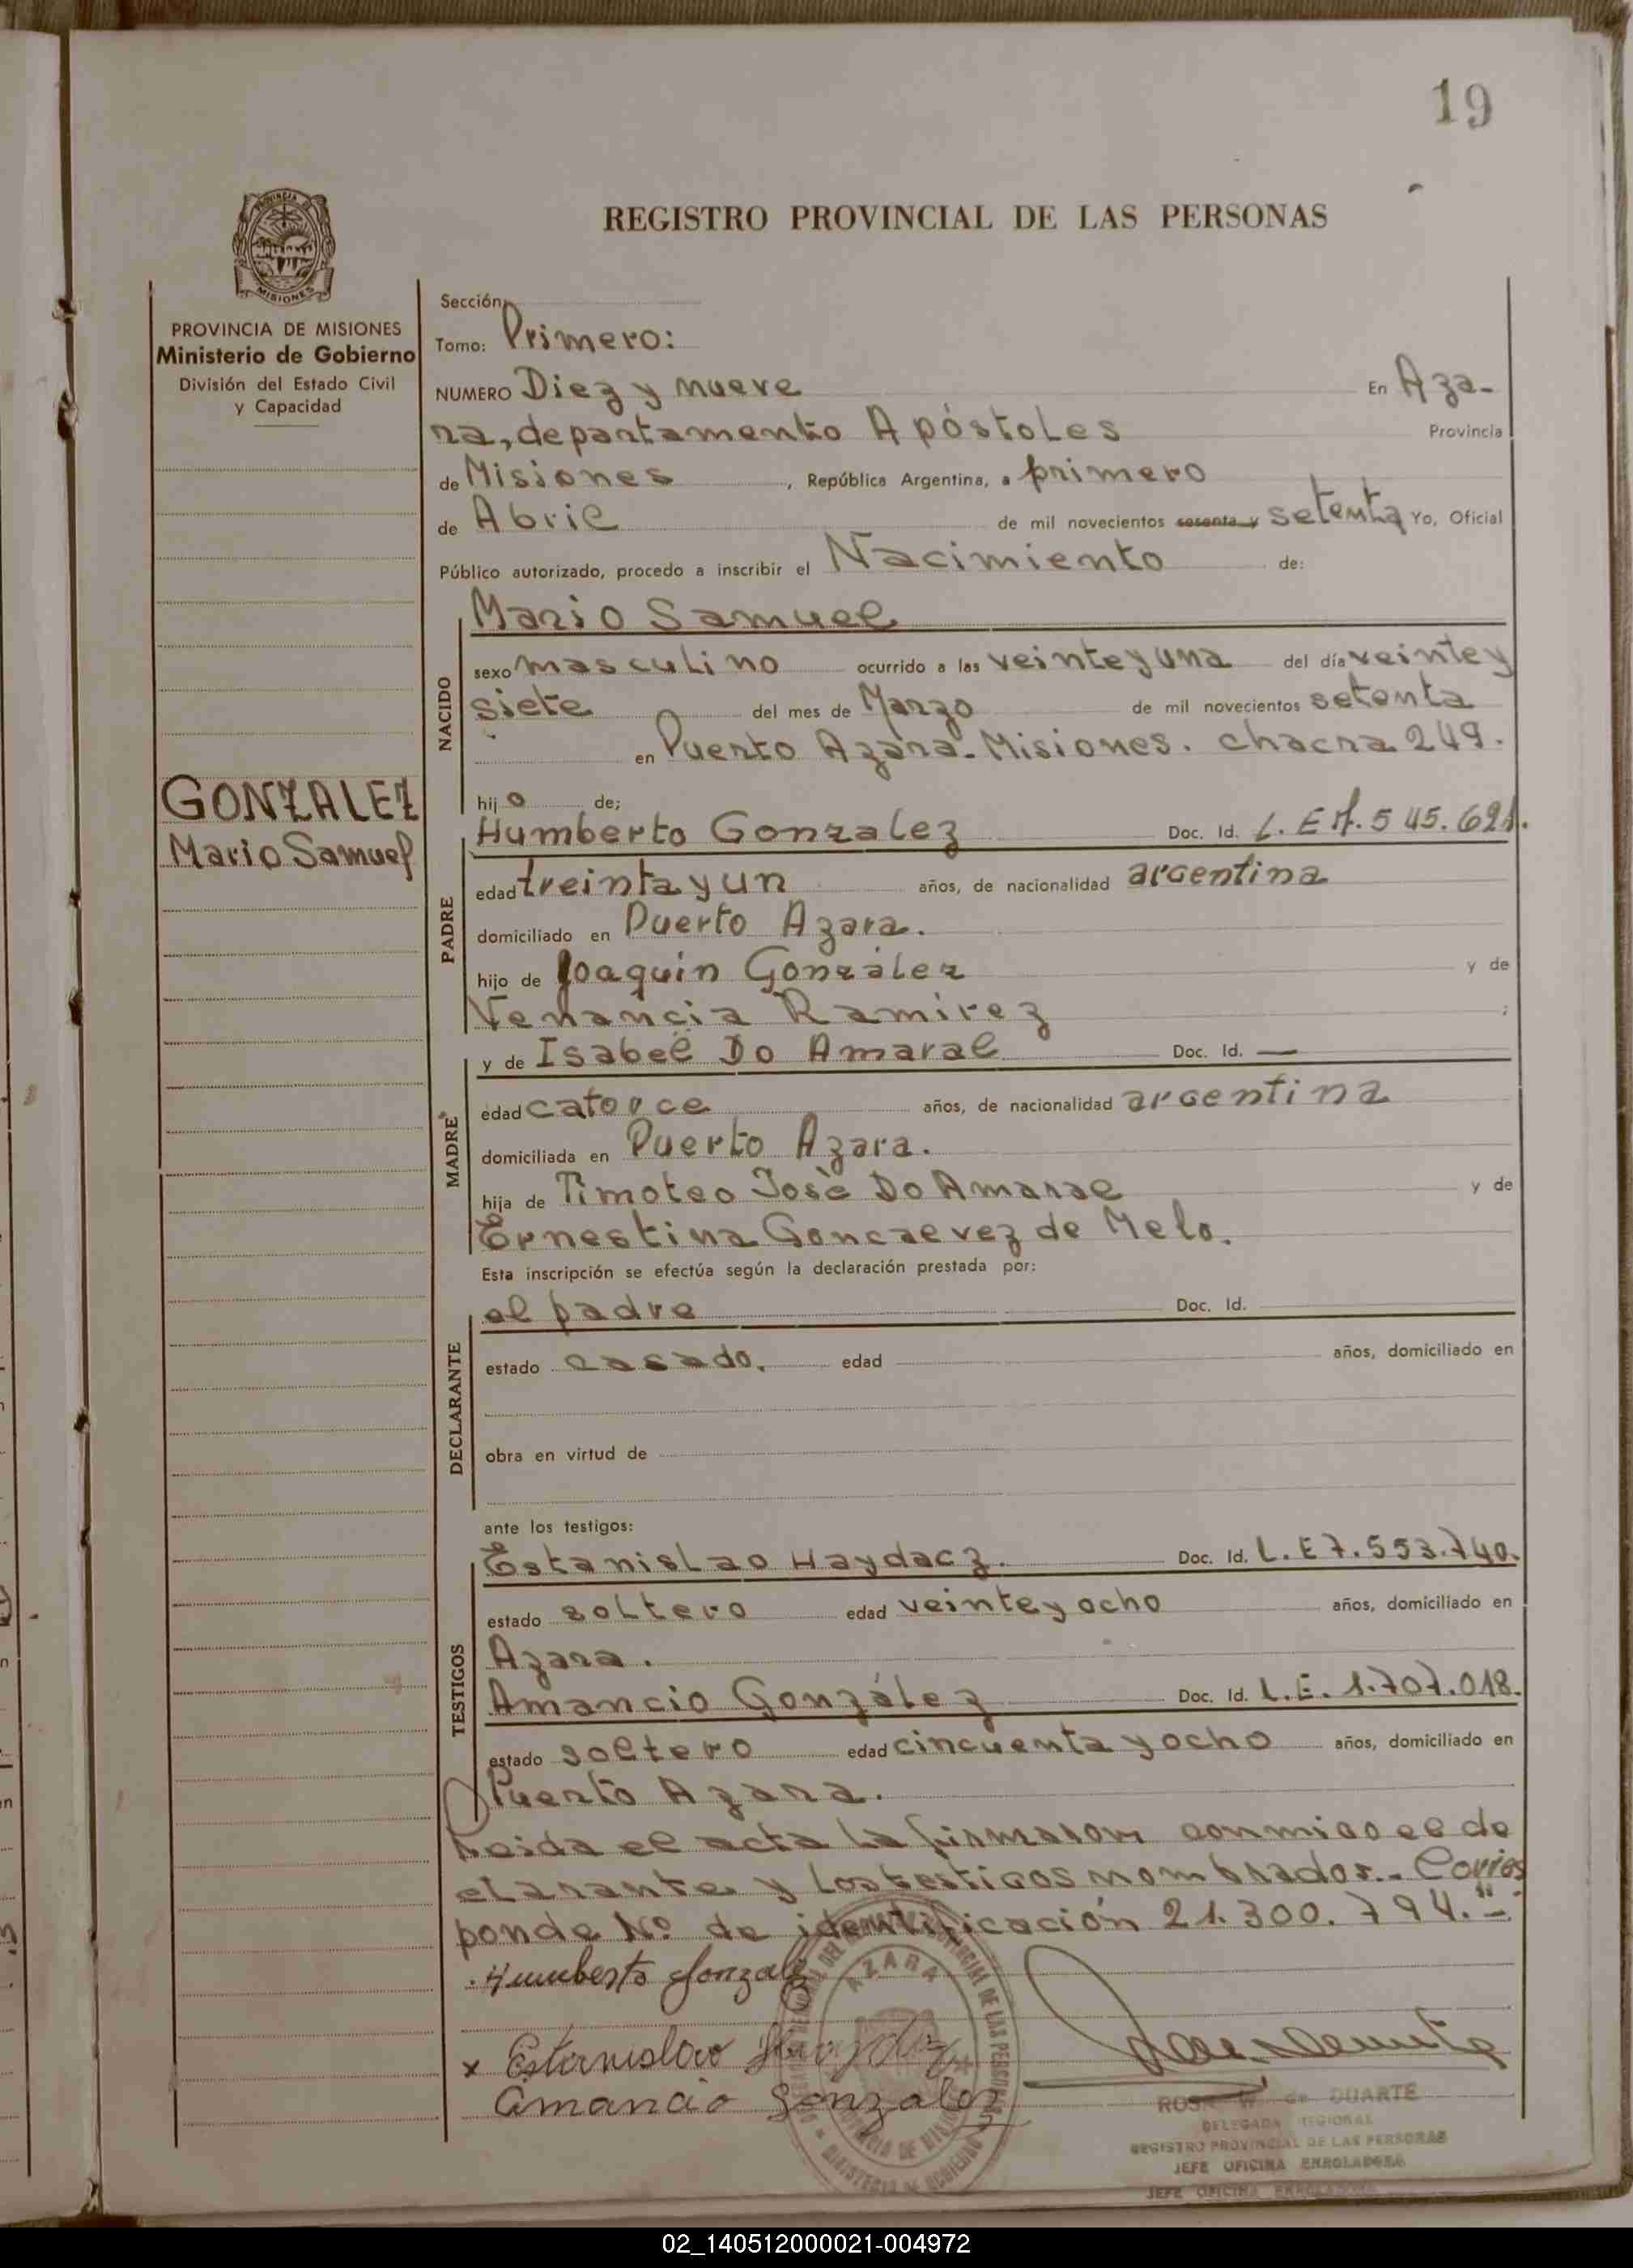 19
REGISTRO PROVINCIAL DE LAS PERSONAS
PROVINCIA DE
MISIONES
PROVINCIA DE MISIONES
Ministerio de Gobierno
División del Estado Civil
y Capacidad
GONZALEZ
Mario Samuel
Sección
Tomo: Primero:
NUMERO Diez y nueve En Aza-
ra, departamento Apóstoles Provincia
de Misiones, República Argentina, a primero
de Abril de mil novecientos sesenta y setenta Yo, Oficial
Público autorizado, procedo a inscribir el Nacimiento de:
NACIDO
Mario Samuel
sexo masculino ocurrido a las veinte y una del día veinte y
siete del mes de Marzo de mil novecientos setenta
en Puerto Azara - Misiones. chacra 249.
hijo de;
PADRE
Humberto Gonzalez Doc. Id. L. E 7. 545. 621.
edad treinta y un años, de nacionalidad argentina
domiciliado en Puerto Azara.
hijo de Joaquín González y de
Venancia Ramirez ;
MADRE
y de Isabel Do Amaral Doc. Id. —
edad catorce años, de nacionalidad argentina
domiciliada en Puerto Azara.
hija de Timoteo José Do Amaral y de
Ernestina Goncalvez de Melo.
Esta inscripción se efectúa según la declaración prestada por:
DECLARANTE
el padre Doc. Id.
estado casado. edad años, domiciliado en
obra en virtud de
ante los testigos:
TESTIGOS
Estanislao Haydacz. Doc. Id. L. E 7. 553. 740.
estado soltero edad veinte y ocho años, domiciliado en
Azara.
Amancio González Doc. Id. L. E. 1. 707. 018.
estado soltero edad cincuenta y ocho años, domiciliado en
Puerto Azara.
Leida el acta la firmaron conmigo el de
clarante y los testigos nombrados.- Corres
ponde Nº de identificación 21. 300. 794.-
Humberto Gonzalez
x Estanislao
Amancio Gonzalez
AZARA
ROSA de DUARTE
DELEGADA REGIONAL
REGISTRO PROVINCIAL DE LAS PERSONAS
JEFE OFICINA ENROLADORA
JEFE OFICINA ENROLADORA
02_140512000021-004972